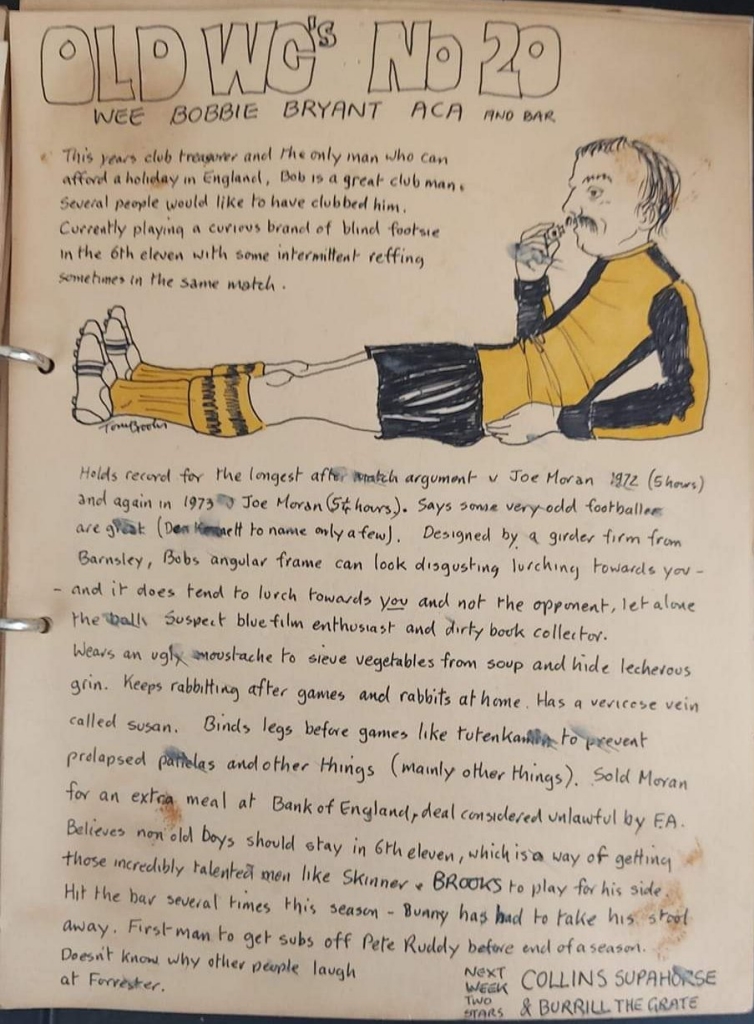 OLD WC's No 20
WEE BOBBIE BRYANT ACA AND BAR
This years club treasurer and the only man who can
afford a holiday in England, Bob is a great club man.
Several people would like to have clubbed him.
Currently playing a curious brand of blind footsie
in the 6th eleven with some intermittent reffing
sometimes in the same match.
Tom Brooks
Holds record for the longest after match argument v Joe Moran 1972 (5 hours)
and again in 1973 v Joe Moran (5¼ hours). Says some very odd footballers
are great (Den Kennett to name only a few). Designed by a girder firm from
Barnsley, Bobs angular frame can look disgusting lurching towards you -
- and it does tend to lurch towards you and not the opponent, let alone
the ball. Suspect blue film enthusiast and dirty book collector.
Wears an ugly moustache to sieve vegetables from soup and hide lecherous
grin. Keeps rabbitting after games and rabbits at home. Has a vericose vein
called susan. Binds legs before games like tutenkamin to prevent
prolapsed patelas and other things (mainly other things). Sold Moran
for an extra meal at Bank of England, deal considered unlawful by F.A.
Believes non old boys should stay in 6th eleven, which is a way of getting
those incredibly talented men like Skinner & BROOKS to play for his side.
Hit the bar several times this season - Bunny has had to take his stool
away. First man to get subs off Pete Ruddy before end of a season.
Doesn't know why other people laugh
at Forrester.
NEXT WEEK TWO STARS
COLLINS SUPAHORSE
& BURRILL THE GRATE